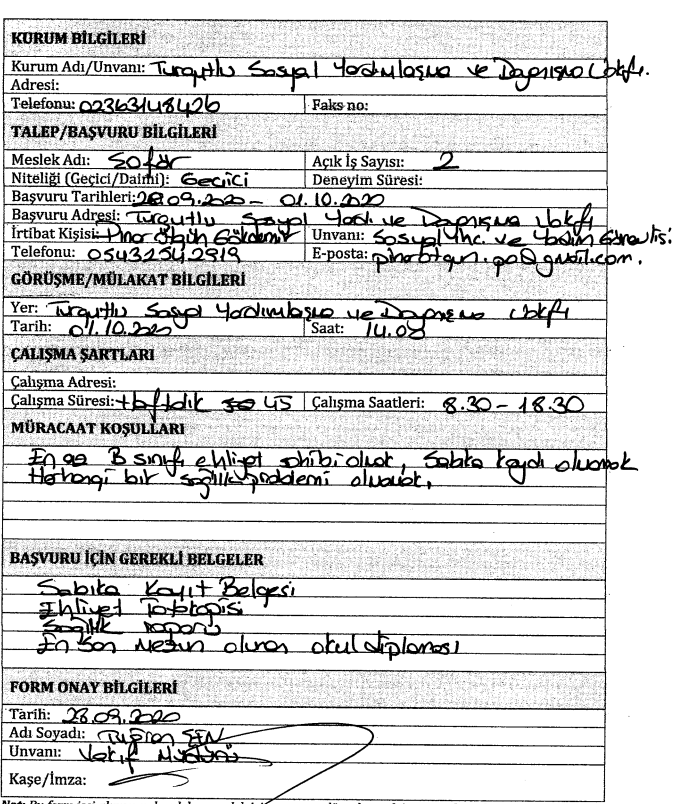 KURUM BİLGİLERİ
Kurum Adı/Unvanı: Turgutlu Sosyal Yardımlaşma ve Dayanışma Vakfı.
Adresi:
Telefonu: 02363148426 Faks no:
TALEP/BAŞVURU BİLGİLERİ
Meslek Adı: Şoför Açık İş Sayısı: 2
Niteliği (Geçici/Daimi): Geçici Deneyim Süresi:
Başvuru Tarihleri: 28.09.2020 - 01.10.2020
Başvuru Adresi: Turgutlu Sosyal Yard. ve Dayanışma Vakfı
İrtibat Kişisi: Pınar Otgün Gökdemir Unvanı: Sosyal İnc. ve Yardım Görevlisi
Telefonu: 0543 254 2919 E-posta: pinarotgun.po@gmail.com.
GÖRÜŞME/MÜLAKAT BİLGİLERİ
Yer: Turgutlu Sosyal Yardımlaşma ve Dayanışma Vakfı
Tarih: 01.10.2020 Saat: 14.00
ÇALIŞMA ŞARTLARI
Çalışma Adresi:
Çalışma Süresi: Haftalık 45 Çalışma Saatleri: 8.30 - 18.30
MÜRACAAT KOŞULLARI
En az B sınıfı ehliyet sahibi olmak, Sabıka kaydı olmamak
Herhangi bir sağlık problemi olmamak,
BAŞVURU İÇİN GEREKLİ BELGELER
Sabıka Kayıt Belgesi
Ehliyet Fotokopisi
Sağlık raporu
En son Mezun olunan okul diploması
FORM ONAY BİLGİLERİ
Tarih: 28.09.2020
Adı Soyadı: ŞEN
Unvanı: Vakıf Müdürü
Kaşe/İmza: